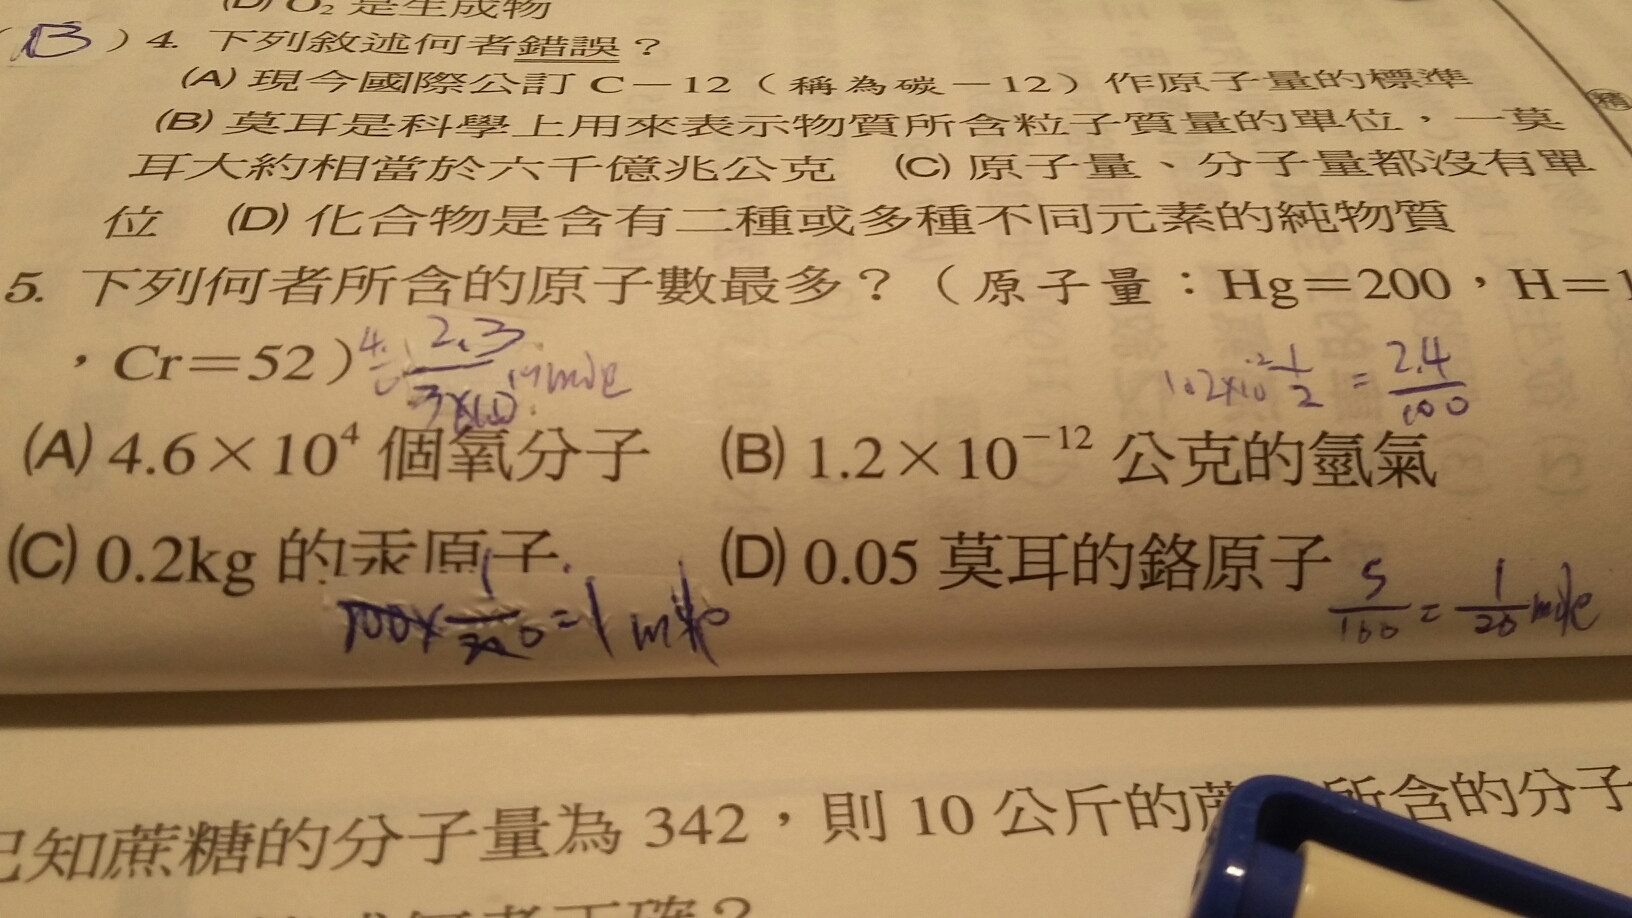 (D) O₂ 是生成物
(B) 4. 下列敘述何者錯誤？
(A) 現今國際公訂 C－12（稱為碳－12）作原子量的標準
(B) 莫耳是科學上用來表示物質所含粒子質量的單位，一莫
耳大約相當於六千億兆公克 (C) 原子量、分子量都沒有單
位 (D) 化合物是含有二種或多種不同元素的純物質
5. 下列何者所含的原子數最多？（原子量：Hg＝200，H＝1
，Cr＝52）
2.3
mole
1.2×10⁻¹² 1/2 = 2.4/100
(A) 4.6×10⁴ 個氧分子 (B) 1.2×10⁻¹² 公克的氫氣
(C) 0.2kg 的汞原子 (D) 0.05 莫耳的鉻原子
=1 5/100 = 1/20 mole
已知蔗糖的分子量為 342，則 10 公斤的蔗 所含的分子